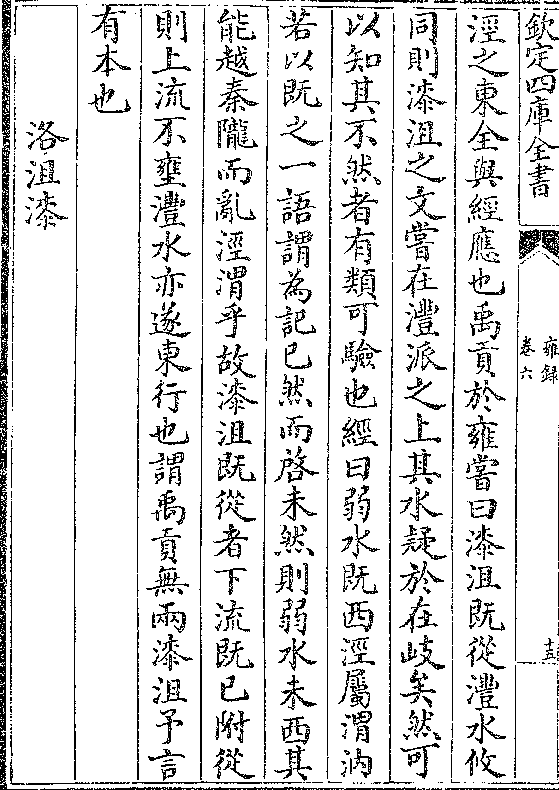 欽定四庫全書
雍録
卷六
十五
涇之東全與經應也禹貢於雍嘗曰漆沮既從灃水攸
同則漆沮之文嘗在灃派之上其水疑於在岐矣然可
以知其不然者有類可驗也經曰弱水既西涇屬渭汭
若以既之一語謂為記已然而啓未然則弱水未西其
能越秦隴而亂涇渭乎故漆沮既從者下流既已附從
則上流不壅灃水亦遂東行也謂禹貢無兩漆沮予言
有本也
洛沮漆